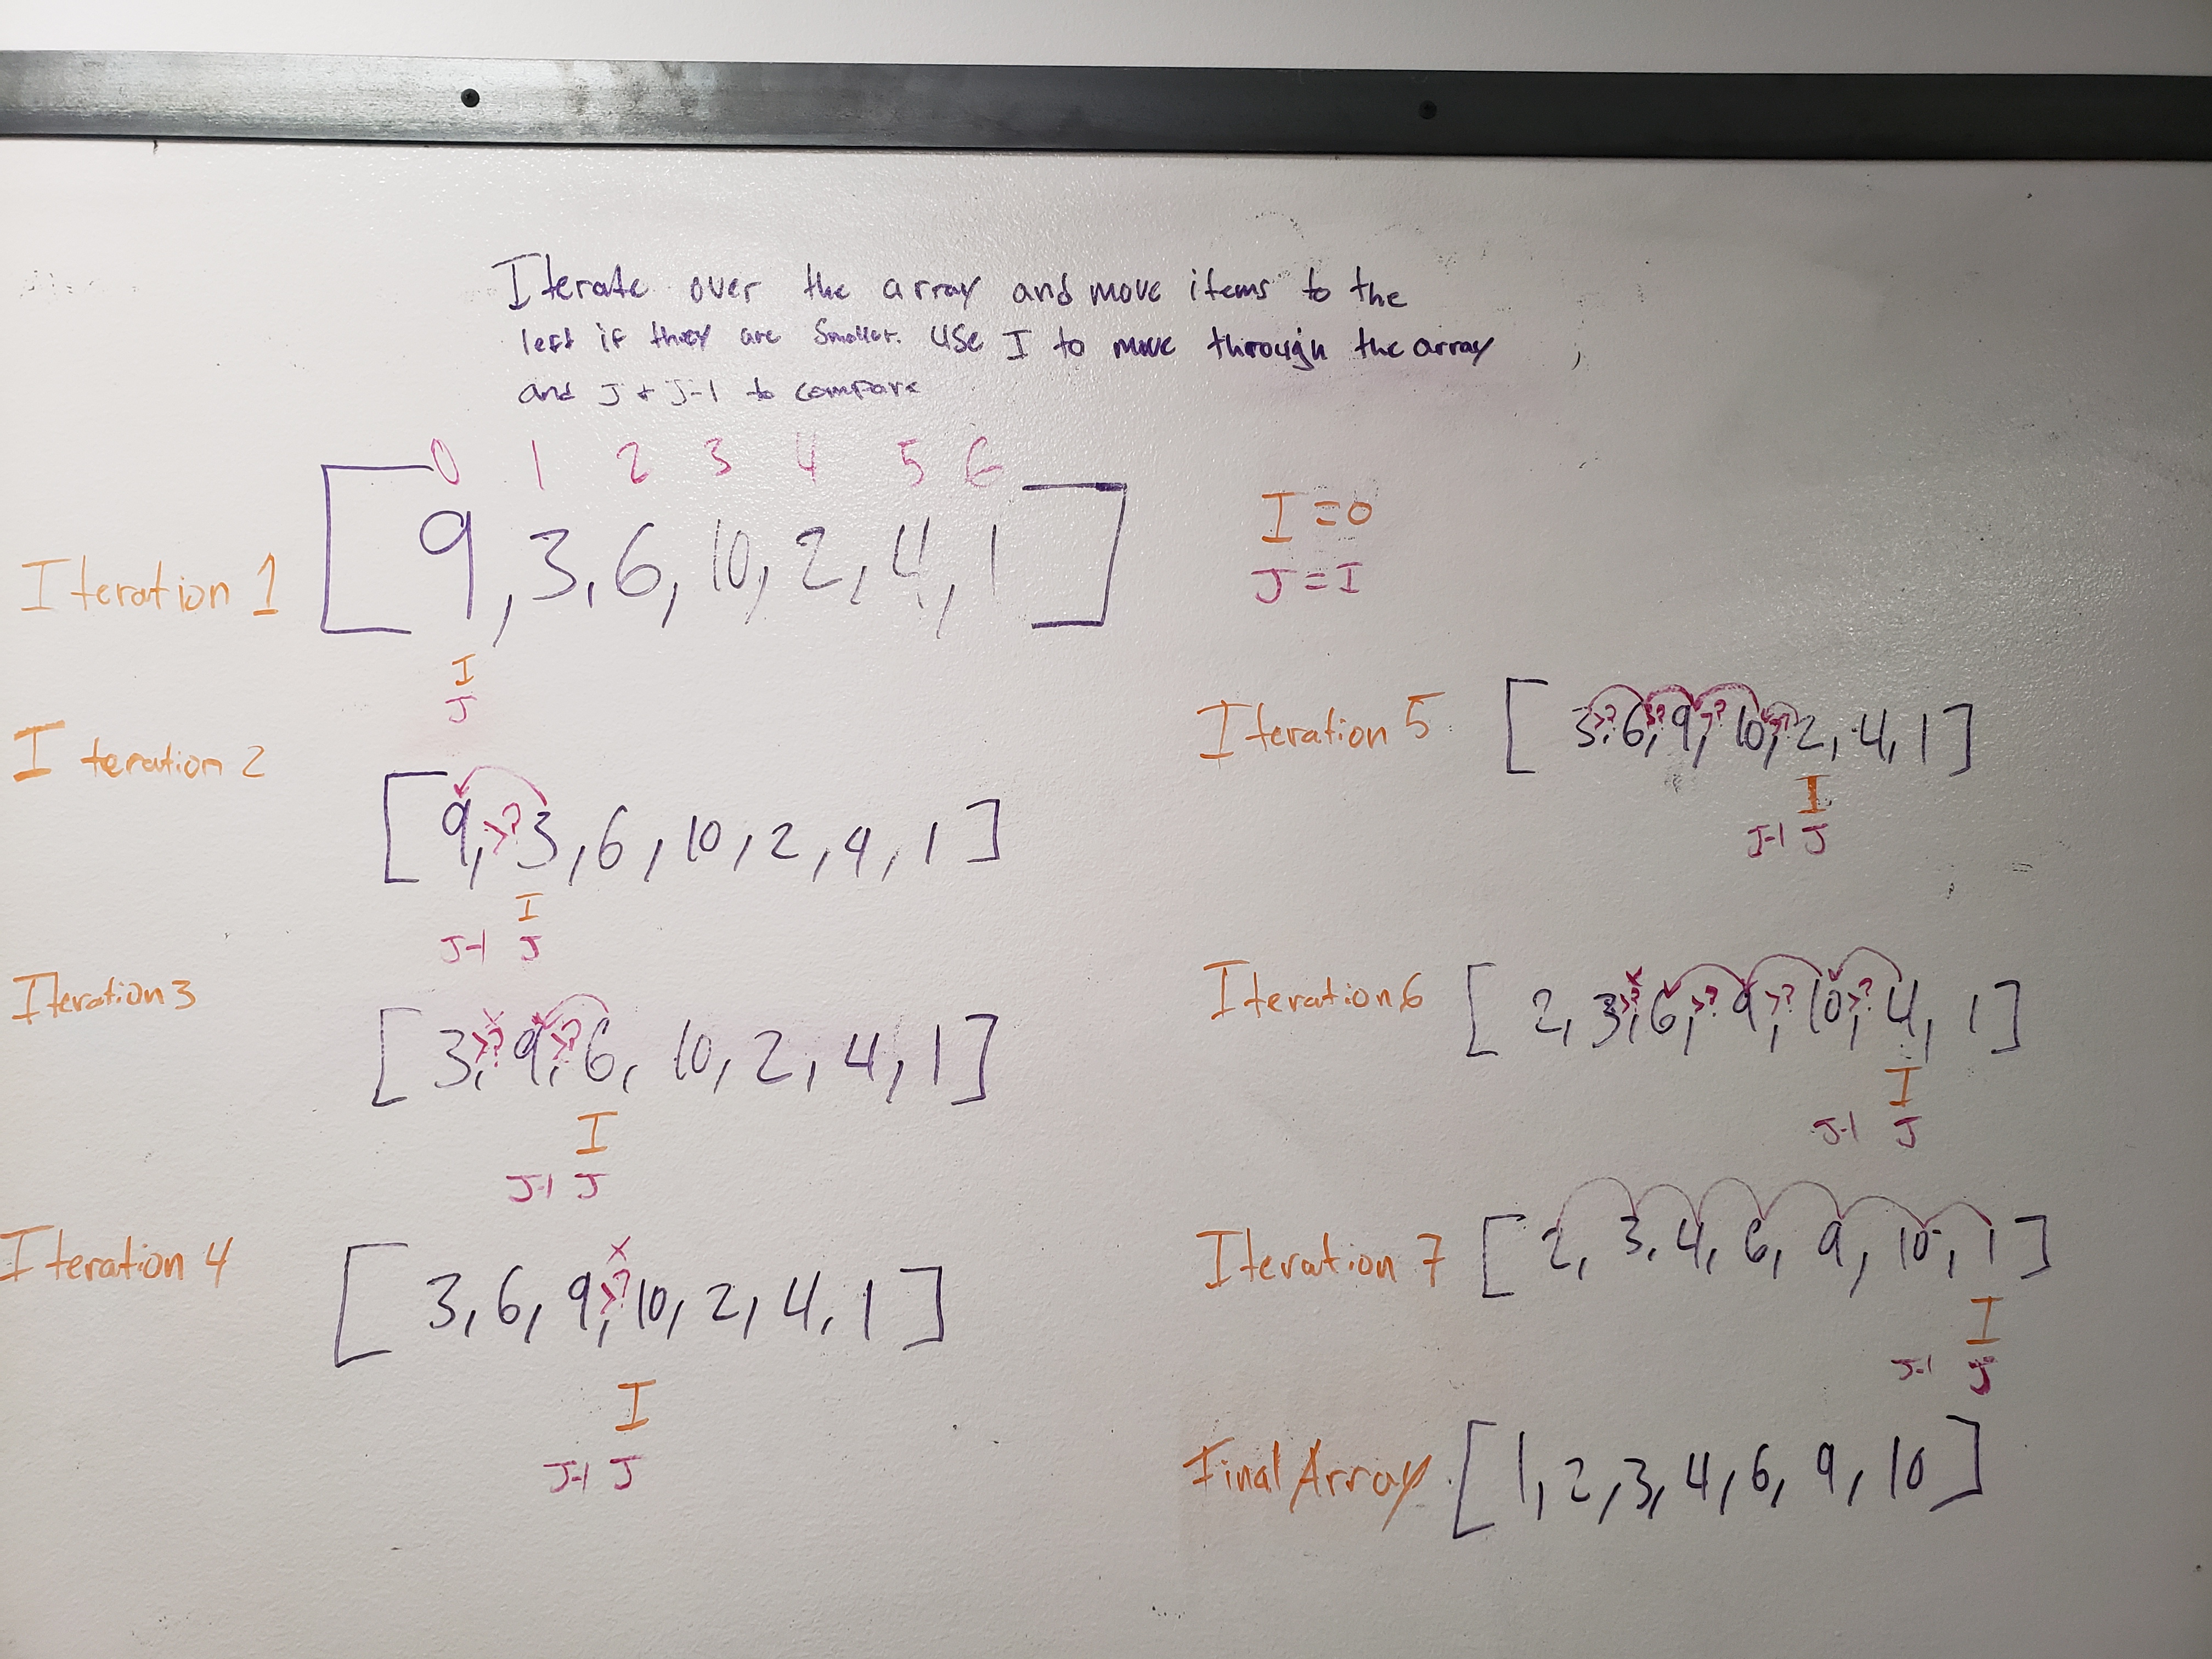 Iterate over the array and move items to the
left if they are smaller. Use I to move through the array
and J + J-1 to compare
0 1 2 3 4 5 6
Iteration 1 [ 9, 3, 6, 10, 2, 4, 1 ]
I
J
I = 0
J = I
Iteration 2
[ 9, >? 3, 6, 10, 2, 4, 1 ]
I
J-1 J
Iteration 3
x
[ 3, >? 9, >? 6, 10, 2, 4, 1 ]
I
J-1 J
Iteration 4
x
[ 3, 6, 9, >? 10, 2, 4, 1 ]
I
J-1 J
Iteration 5 [ 3, >? 6, >? 9, >? 10, >? 2, 4, 1 ]
I
J-1 J
x
Iteration 6 [ 2, 3, >? 6, >? 9, >? 10, >? 4, 1 ]
I
J-1 J
Iteration 7 [ 2, 3, 4, 6, 9, 10, 1 ]
I
J-1 J
Final Array [ 1, 2, 3, 4, 6, 9, 10 ]